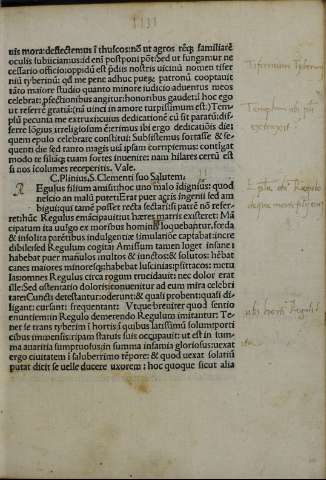 IIII
uis mora: deflectemus ĩ thuscos: nõ ut agros rẽq; familiarẽ
oculis subiiciamus: id enĩ postponi põt: Sed ut fungamur ne
cessario officio: oppidũ est p̃diis nostris uicinũ nomen tifer
niũ tyberinũ: qd me pene adhuc puerũ patronũ cooptauit
tãto maiore studio quanto minore iudicio aduentus meos
celebrat: pfectionibus angitur: honoribus gaudet. ĩ hoc ego
ut referrẽ gratiã: (nã uinci in amore turpissimum est:) Tem
plũ pecunia mea extruxi: cuius dedicationẽ cũ sit paratũ: dif-
ferre lõgius irreligiosum ẽ: erimus ibi ergo dedicatiõis die:
quem epulo celebrare constitui: Subsistemus fortasse & se-
quenti die sed tanto magis uiã ipsam corripiemus: contigat
modo te filiãq; tuam fortes inuenire: nam hilares certũ est
si nos icolumes receperitis. Vale.
C. Plinius. S. Clementi suo Salutem.
REgulus filium amisit: hoc uno malo idignus: quod
nescio an malũ putet: Erat puer acris ingenii sed am
biguiq̃ui tamẽ posset recta sectari: si patrẽ nõ refer-
ret: hũc Regulus emãcipauit: ut hæres matris existeret: Mã
cipatum ita uulgo ex moribus hominis loquebantur, fœda
& insolita parẽtibus indulgentiæ simulatiõe captabat: incre
dibile: sed Regulum cogita: Amissum tamen luget insane:
habebat puer mañulos multos & iunctos: & solutos: hẽbat
canes maiores minoresq; habebat luscinias: psittacos: merulas:
omnes Regulus circa rogum trucidauit: nec dolor erat
ille: Sed ostentatio doloris: conuenitur ad eum mira celebri
tate: Cuncti detestantur: oderunt: & quasi probent: quasi di-
ligant: cursant: frequentant: Vtque breuiter quod sentio
enuntiem: in Regulo demerendo Regulum imitantur: Te-
net se trans tyberim ĩ hortis: ĩ quibus latissimũ solum porti
cibus immensis: ripam statuis suis occupauit: ut est in sum-
ma auaritia sumptuosus: in summa infamia gloriosus: uexat
ergo ciuitatem ĩ saluberrimo tẽpore: & quod uexat solatiũ
putat dicit se uelle ducere uxorem: hoc quoque sicut alia
Tifernum Tyberin
Templum ubi pli
extruxit